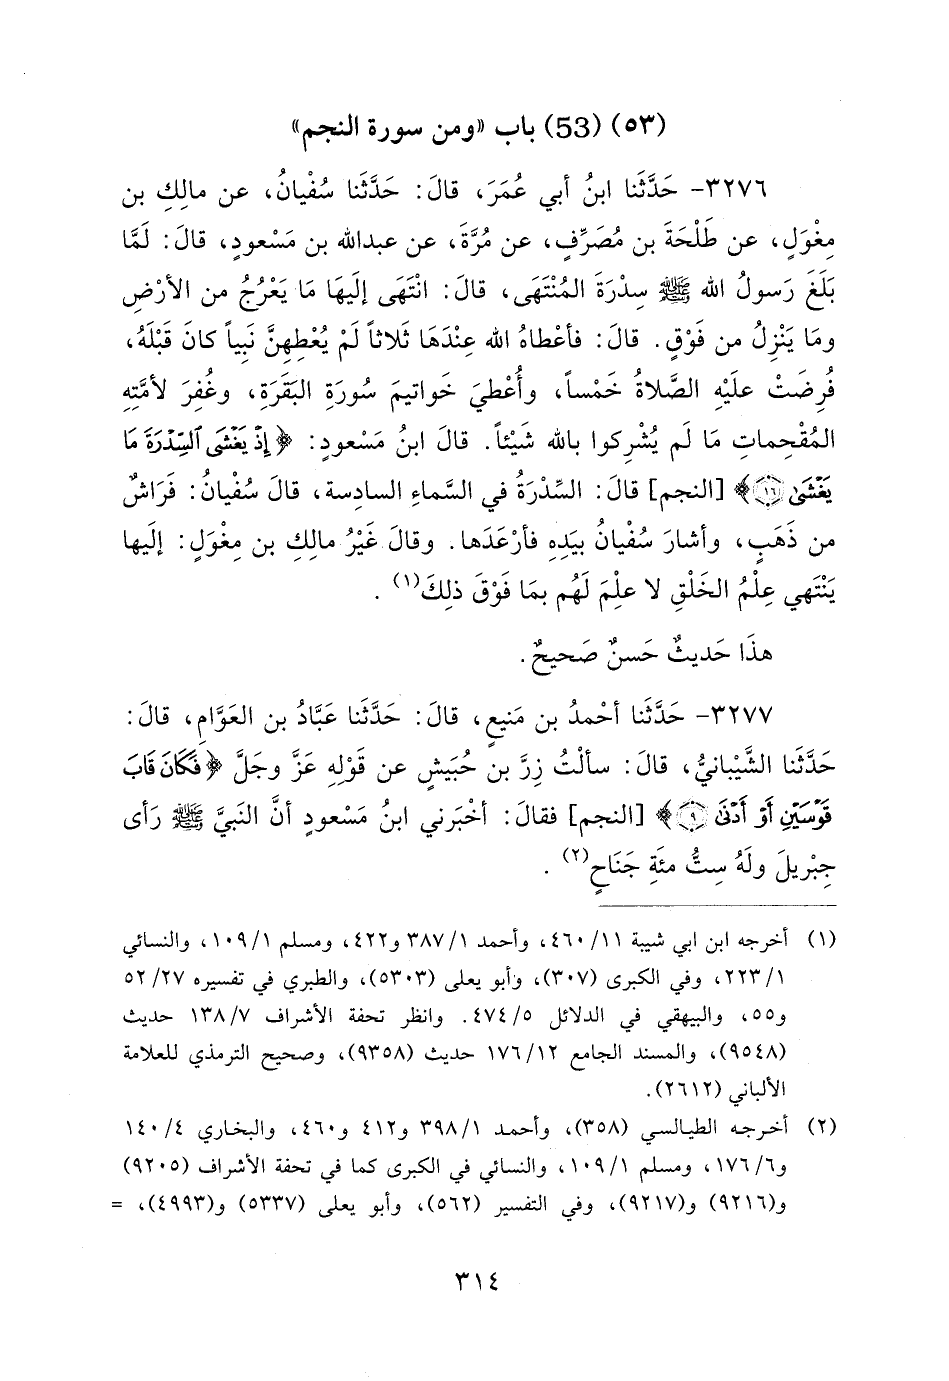 (٥٣) (53) باب «ومن سورة النجم»
٣٢٧٦- حَدَّثَنا ابنُ أبي عُمَرَ، قالَ: حَدَّثَنا سُفْيانُ، عن مالِكِ بن
مِغْوَلٍ، عن طَلْحَةَ بن مُصَرِّفٍ، عن مُرَّةَ، عن عبدالله بن مَسْعودٍ، قالَ: لَمَّا
بَلَغَ رَسولُ الله ﷺ سِدْرَةَ المُنْتَهَى، قالَ: انْتَهَى إلَيهَا مَا يَعْرُجُ من الأرْضِ
ومَا يَنْزِلُ من فَوْقٍ. قالَ: فأعْطاهُ الله عِنْدَهَا ثَلاثاً لَمْ يُعْطِهِنَّ نَبِياً كانَ قَبْلَهُ،
فُرِضَتْ علَيْهِ الصَّلاةُ خَمْساً، وأُعْطيَ خَواتيمَ سُورَةِ البَقَرَةِ، وغُفِرَ لأمَّتِهِ
المُقْحِماتِ مَا لَم يُشْرِكوا بالله شَيْئاً. قالَ ابنُ مَسْعودٍ: ﴿إِذْ يَغْشَى ٱلسِّدْرَةَ مَا
يَغْشَىٰ ١٦﴾ [النجم] قالَ: السِّدْرَةُ في السَّماءِ السادسة، قالَ سُفْيانُ: فَرَاشٌ
من ذَهَبٍ، وأشارَ سُفْيانُ بيَدِهِ فأرْعَدَها. وقالَ غَيْرُ مالِكِ بن مِغْوَلٍ: إلَيها
يَنْتَهي عِلْمُ الخَلْقِ لا عِلْمَ لَهُم بمَا فَوْقَ ذلِكَ(١) .
هذَا حَديثٌ حَسنٌ صَحيحٌ.
٣٢٧٧- حَدَّثَنا أحْمدُ بن مَنيعٍ، قالَ: حَدَّثَنا عَبَّادُ بن العَوَّامِ، قالَ:
حَدَّثَنا الشَّيْبانيُّ، قالَ: سألْتُ زِرَّ بن حُبَيشٍ عن قَوْلِهِ عَزَّ وجَلَّ ﴿فَكَانَ قَابَ
قَوْسَيْنِ أَوْ أَدْنَىٰ ٩﴾ [النجم] فقالَ: أخْبَرني ابنُ مَسْعودٍ أنَّ النَبيَّ ﷺ رَأى
جِبْريلَ ولَهُ ستُّ مئَةِ جَنَاحٍ(٢) .
(١) أخرجه ابن ابي شيبة ١١/ ٤٦٠، وأحمد ١/ ٣٨٧ و٤٢٢، ومسلم ١/ ١٠٩، والنسائي
١/ ٢٢٣، وفي الكبرى (٣٠٧)، وأبو يعلى (٥٣٠٣)، والطبري في تفسيره ٢٧/ ٥٢
و٥٥، والبيهقي في الدلائل ٥/ ٤٧٤. وانظر تحفة الأشراف ٧/ ١٣٨ حديث
(٩٥٤٨)، والمسند الجامع ١٢/ ١٧٦ حديث (٩٣٥٨)، وصحيح الترمذي للعلامة
الألباني (٢٦١٢).
(٢) أخرجه الطيالسي (٣٥٨)، وأحمد ١/ ٣٩٨ و٤١٢ و٤٦٠، والبخاري ٤/ ١٤٠
و٦/ ١٧٦، ومسلم ١/ ١٠٩، والنسائي في الكبرى كما في تحفة الأشراف (٩٢٠٥)
و(٩٢١٦) و(٩٢١٧)، وفي التفسير (٥٦٢)، وأبو يعلى (٥٣٣٧) و(٤٩٩٣)، =
٣١٤